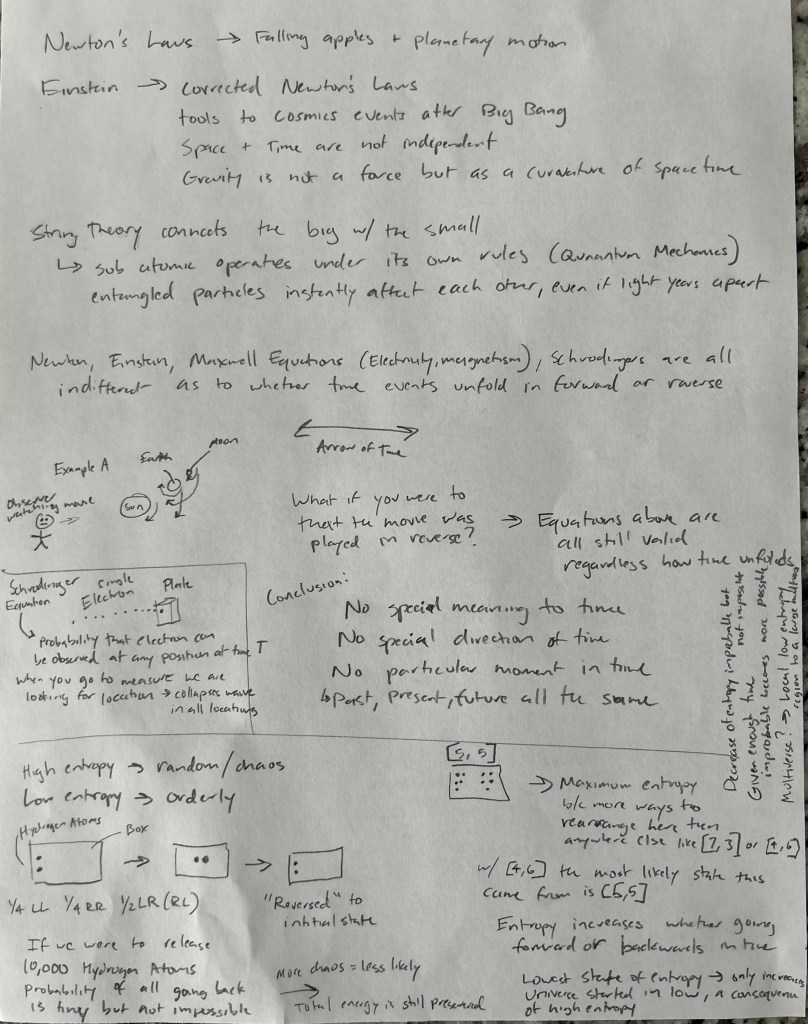 Newton's Laws → Falling apples + planetary motion
Einstein → Corrected Newton's Laws
tools to Cosmics events after Big Bang
Space + Time are not independent
Gravity is not a force but as a curvature of spacetime
String Theory connects the big w/ the small
↳ sub atomic operates under its own rules (Qunantum Mechanics)
entangled particles instantly affect each other, even if light years apart
Newton, Einstein, Maxwell Equations (Electricity, magnetism), Schrodingers are all
indifferent as to whether time events unfold in forward or reverse
Arrow of Time
Example A
Earth
Moon
Sun
Observer
watching movie
What if you were to
that the movie was
played in reverse?
→ Equations above are
all still valid
regardless how time unfolds
Schrodinger
Equation
Single
Electron
Plate
Probability that electron can
be observed at any position at time T
when you go to measure we are
looking for location → collapses wave
in all locations
Conclusion:
No special meaning to time
No special direction of time
No particular moment in time
↳ Past, present, future all the same
Decrease of entropy improbable but
not impossible
Given enough time
improbable becomes more possible
Multiverse? → Local low entropy
region to a large
High entropy → random/chaos
Low entropy → orderly
Hydrogen Atoms
Box
1/4 LL 1/4 RR 1/2 LR (RL)
"Reversed" to
intitial state
If we were to release
10,000 Hydrogen Atoms
probability of all going back
is tiny but not impossible
More chaos = less likely
Total energy is still preserved
[5, 5]
→ Maximum entropy
b/c more ways to
rearrange here then
anywhere else like [7,3] or [4,6]
w/ [4,6] the most likely state this
came from is [5,5]
Entropy increases whether going
forward or backwards in time
Lowest state of entropy → only increases
Universe started in low, a consequence
of high entropy